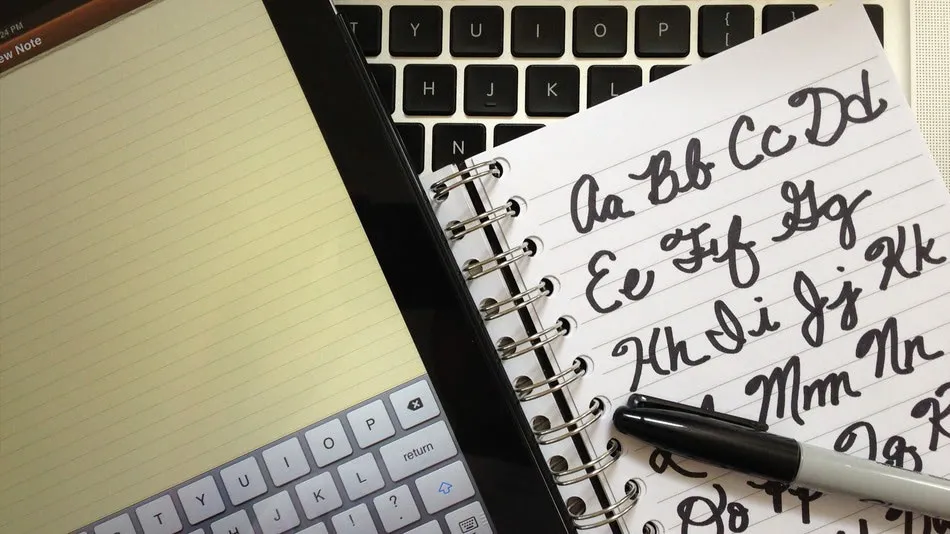 24 PM
ew Note
T Y U I O P { [
H J K L
N
Aa Bb Cc Dd
Ee Ff Gg
Hh Ii Jj Kk
Mm Nn
T Y U I O P
H J K L return
! ?